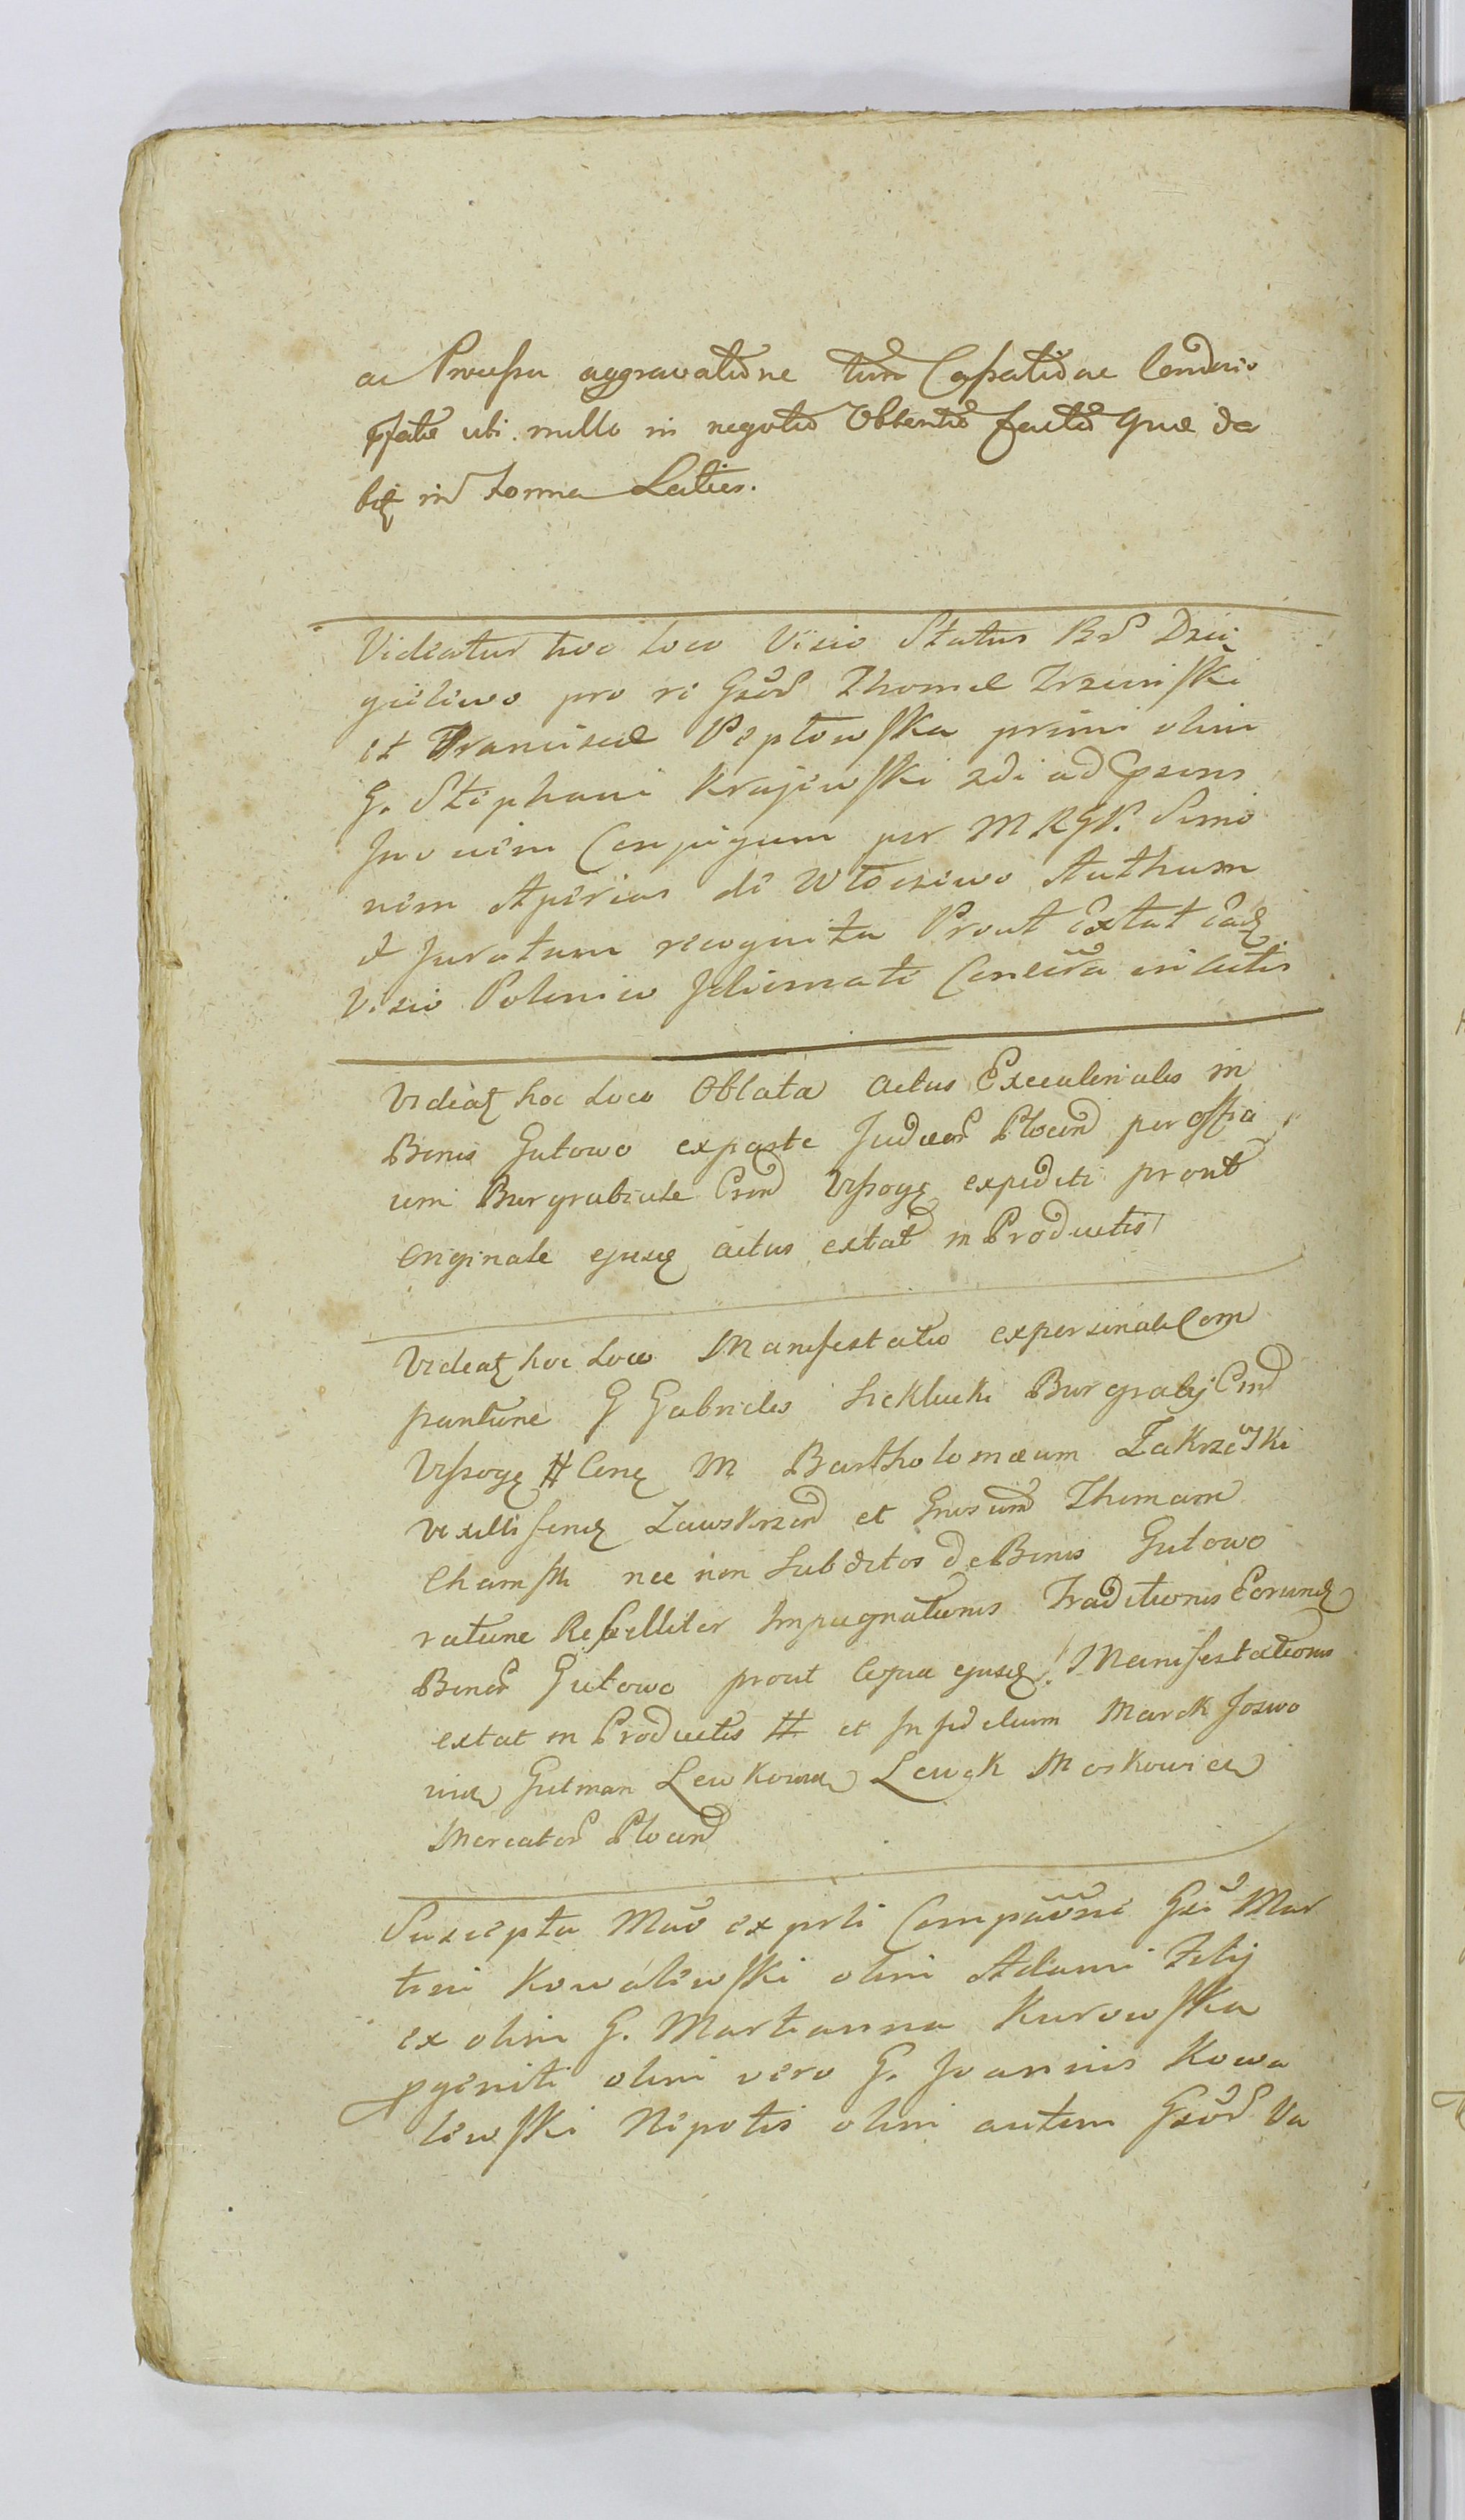 ac Processu aggravatione tum Cassatione Condic
pfatae uti nullo in negotio Obtento facto Quae de
biť in Forma Latius.
Videatur hoc loco Visio Status Br Dzie
gielewo pro re Gsor Thomae Trzcinski
et Franciscae Peptowska primi olim
G. Stephani Krajewski 2di ad psens
Ino uim Conjugum per MRGR. Simo
nem Apierias de Wtosciewo Authum
et Juratum recognita Prout Extat Eadȩ
Visio Polonico Idiomati Concera in Actis
Videaţ hoc Loco Oblata actus Executerialis in
Bonis Gutowo exparte Judaeor Plocen per Offici
um Burgrabiale Cren Vissogȩ expediti prout
Originale ejusȩ actus extat in Productis
Videaţ hoc Loco Manifestatio expersonali Com
paritione G Gabrieles Sieklucki Burgrabij Cren
Vissogȩ # Conȩ M Bartholomaeum Zakrzewski
Vexilliferuȩ Zawskrzen et Gnosum Thomam
Chamski nec non Subditos de Bonis Gutowo
ratione Rebelliter Impugnationis Traditionis Eorundȩ
Bonor Gutowo prout Copia ejusdȩ Manifestationis
extat in Productis # et Infidelium Marek Joswo
wicz Gutman Lewkowicz Lewek Moskowicz
Mercator Plocen
Suscepta Mao ex prli Compaone Gsi Mar
tini Kowalewski olim Adami Filij
ex olim G. Martianna Kurowska
pgeniti olim vero G. Joannis Kowa
lewski Nepotis olim autem Gsor Va